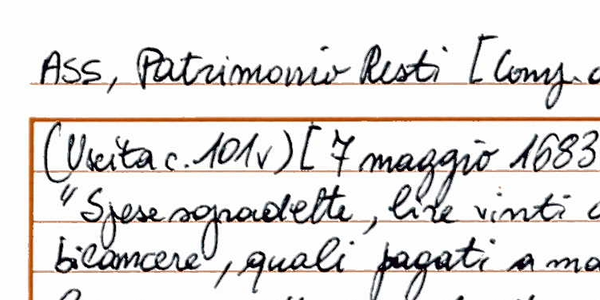 ASS, Patrimonio Resti [Cong.
(Uscita c. 101v) [7 maggio 1683
"Spese sopradette, lire vinti
bilancere, quali pagati a